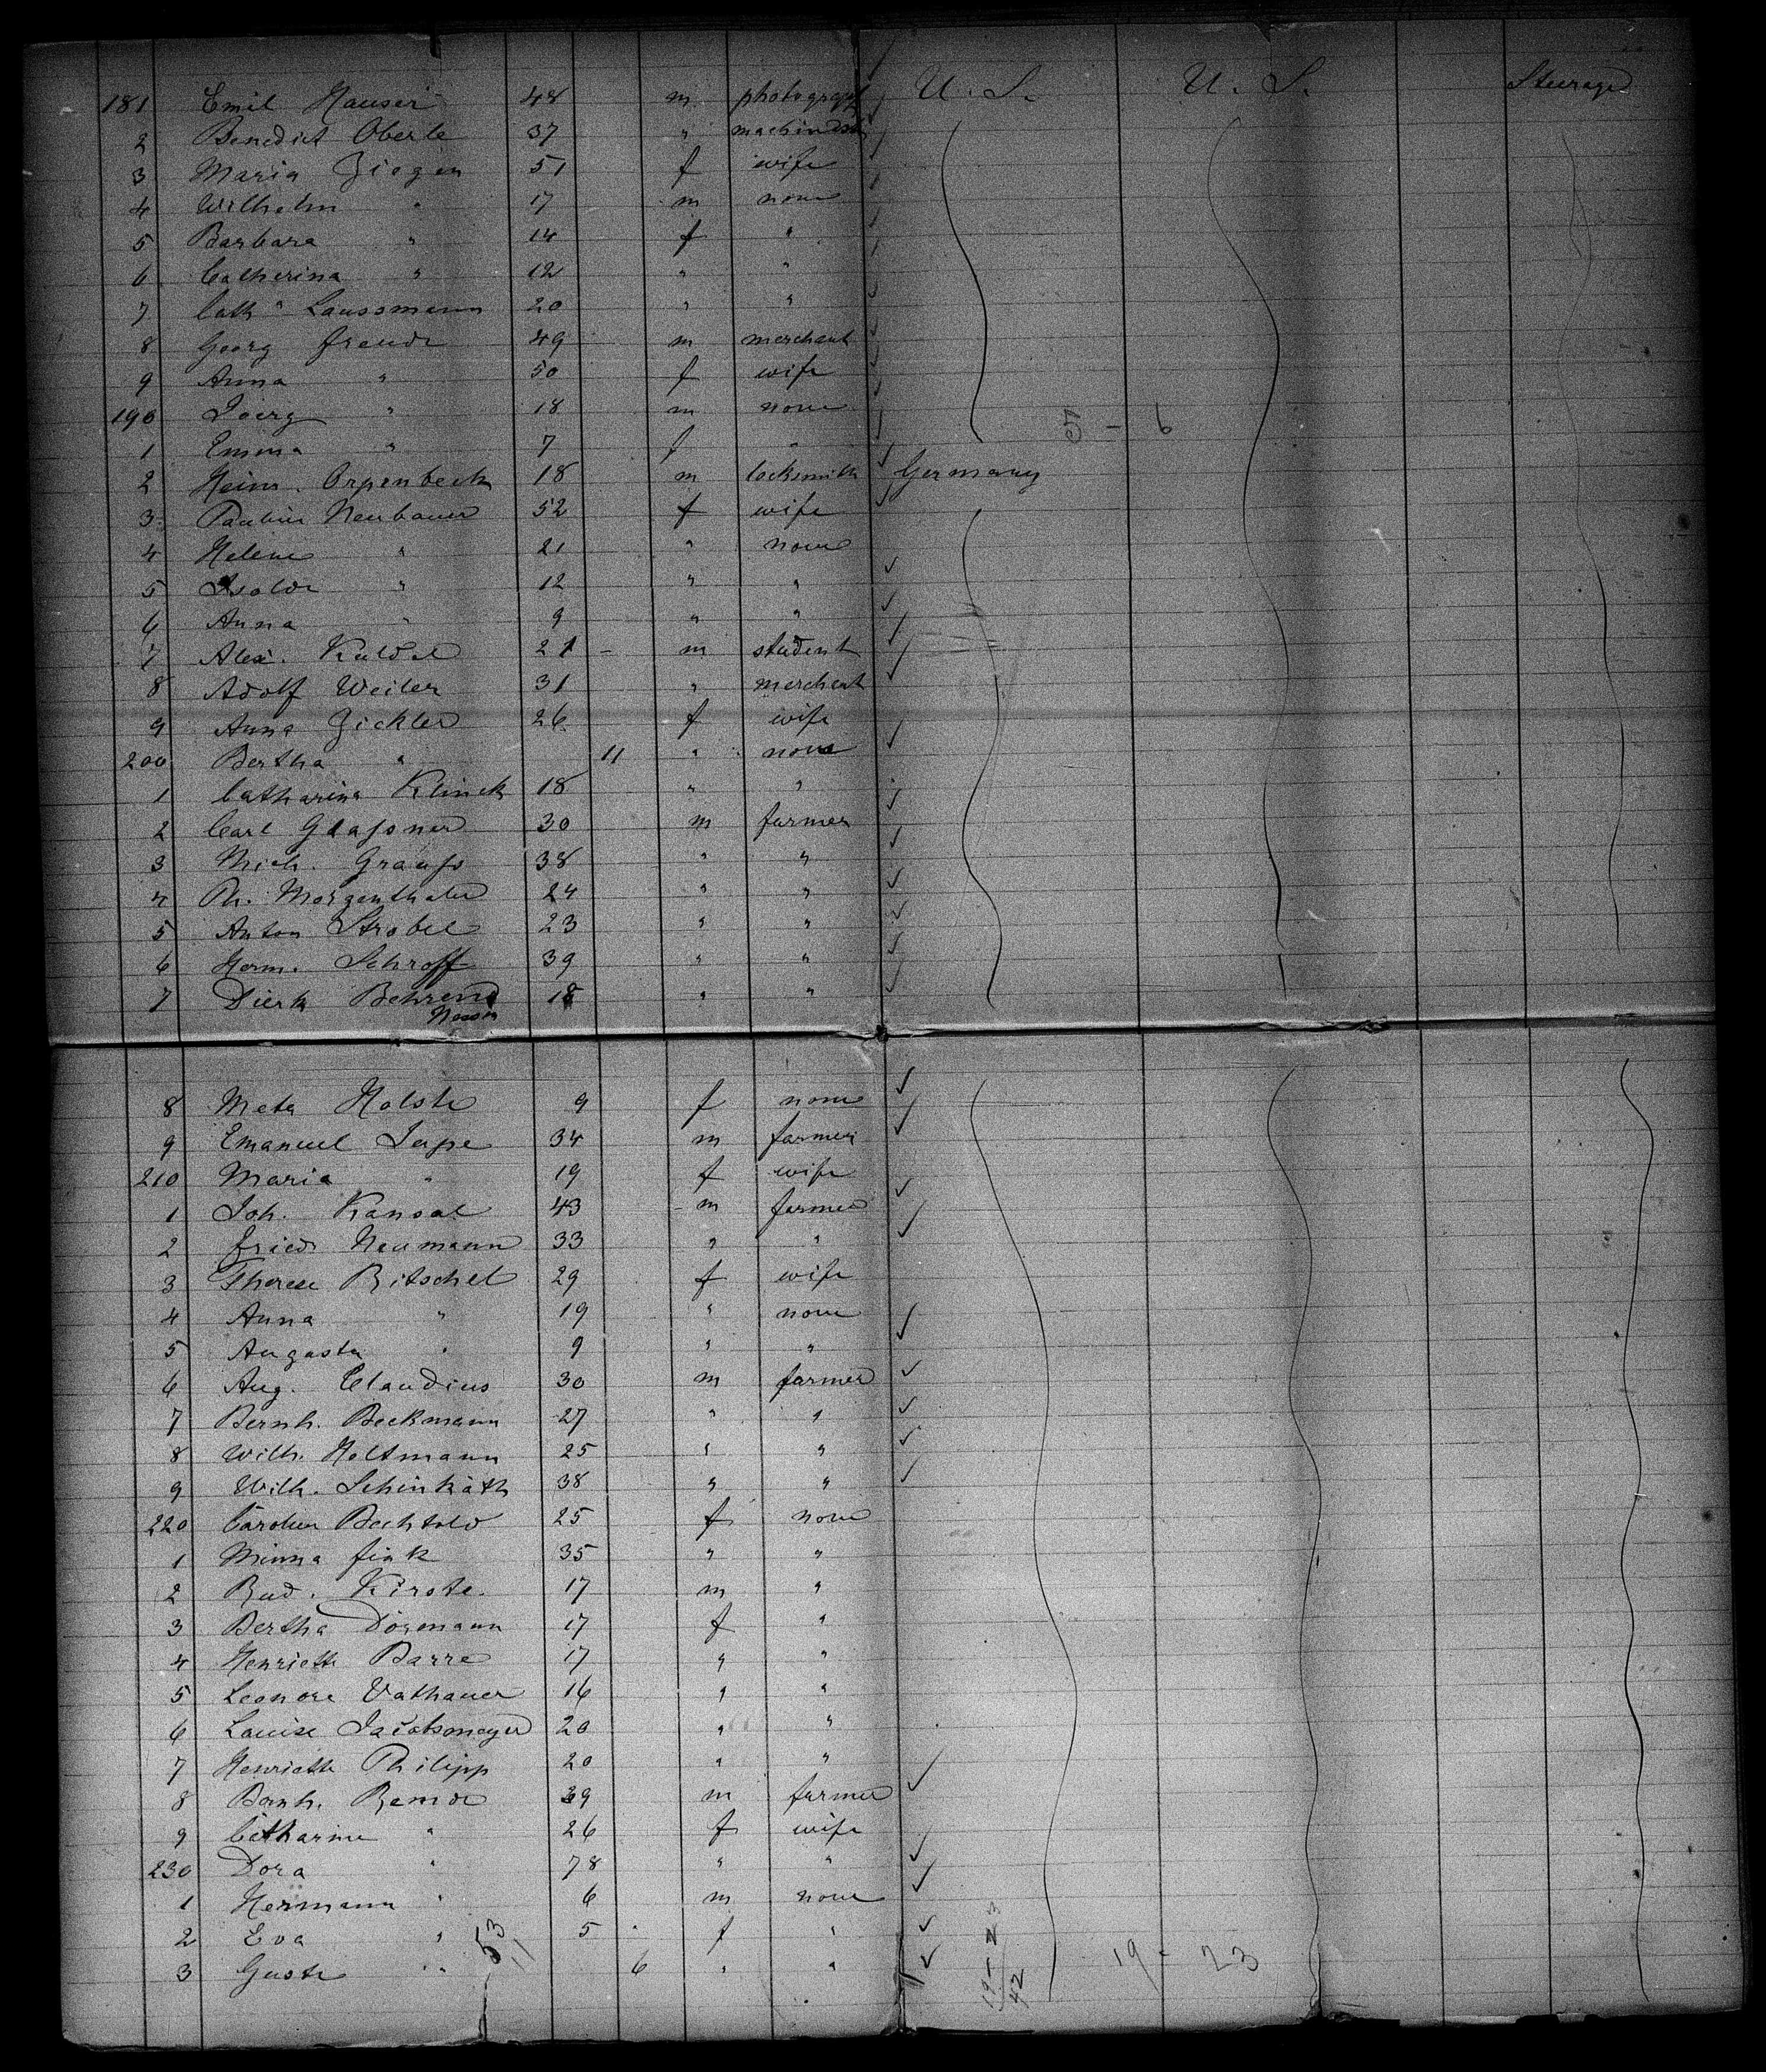 181 Emil Hauser 48 m photograph U. S. U. S. Steerage
2 Benedict Oberle 37 " machinist
3 Maria Ziegen 51 f wife
4 Wilhelm " 17 m none
5 Barbara " 14 f "
6 Catherina " 12 " "
7 Cath " Laussmann 20 " "
8 Georg Freude 49 m merchant
9 Anna " 50 f wife
190 Joerg " 18 m none
1 Emma " 7 f "
2 Heinr. Orpenbeck 18 m locksmith Germany
3 Pauline Neubauer 52 f wife
4 Helene " 21 " none
5 Isolde " 12 " "
6 Anna " 9 " "
7 Alex. 21 m student
8 Adolf Weiler 31 " merchant
9 Anna Zickler 26 f wife
200 Bertha " 11 " none
1 Catharina Klinck 18 " "
2 Carl Glassner 30 m farmer
3 Mich. Grauss 38 " "
4 Ph. Morgenthaler 24 " "
5 Anton Strobel 23 " "
6 Herm. Schroff 39 " "
7 Dierk Behrend 18 " "
8 Meta Holste 9 f none
9 Emanuel 34 m farmer
210 Maria " 19 f wife
1 Joh. Kansal 43 m farmer
2 Friedr Neumann 33 " "
3 Therese Ritschel 29 f wife
4 Anna " 19 " none
5 Augusta " 9 " "
6 Aug. Claudius 30 m farmer
7 Bernh. Beckmann 27 " "
8 Wilh. Holtmann 25 " "
9 Wilh. Schinkäth 38 " "
220 Carolin Bechtold 25 f none
1 Minna Fink 35 " "
2 Rud. Kirste 17 m "
3 Bertha Dörmann 17 f "
4 Henriette Barre 17 " "
5 Leonore Vathauer 16 " "
6 Louise Jacobsmeyer 20 " "
7 Henriette Philipp 20 " "
8 Bernh. Remde 39 m farmer
9 Catharine " 26 f wife
230 Dora " 78 " "
1 Hermann " 6 m none
2 Eva " 5 f "
3 Guste " 6 " " 19 - 23